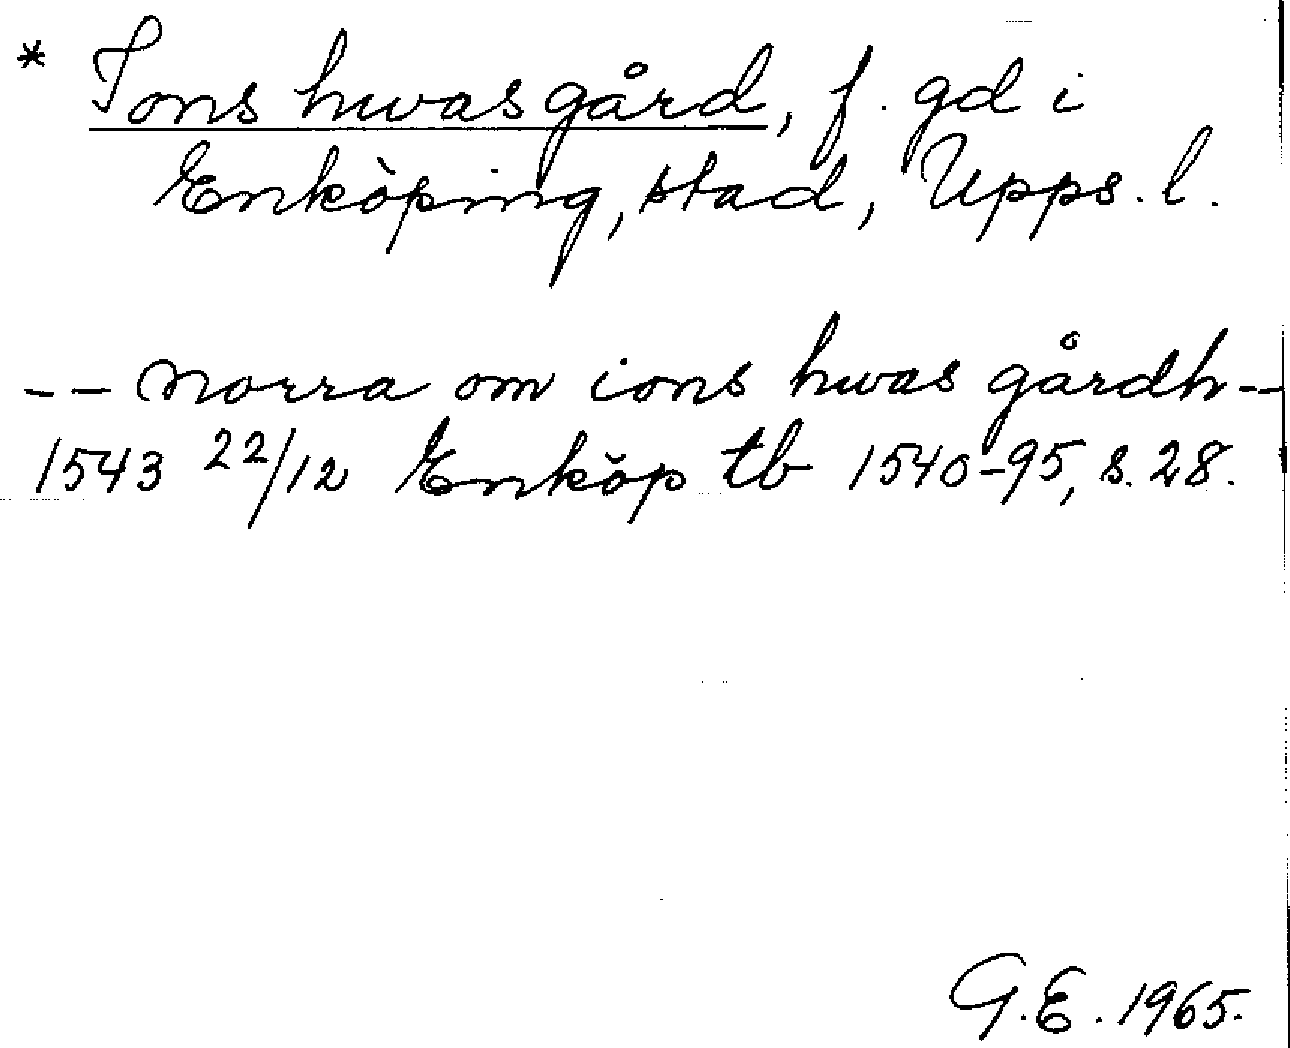 * Ions hwas gård, f. gd i
Enköping, stad, Upps. l.
-- norra om ions hwas gårdh --
1543 22/12 Enköp tb 1540-95, s. 28.
G.E. 1965.